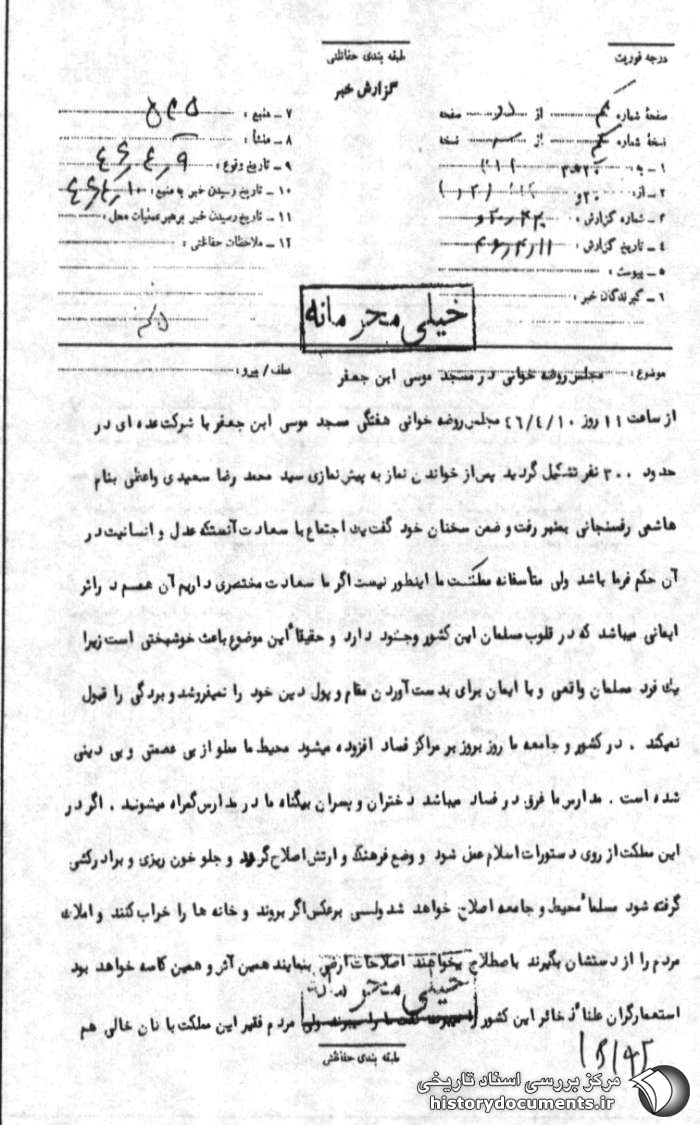 درجه فوریت
طبقه بندی حفاظتی
گزارش خبر
صفحهٔ شماره یکم از دو صفحه
نسخهٔ شماره یکم از نسخه
۱ – به :
۲ – از :
۳ – شماره گزارش :
۴ – تاریخ گزارش : ۴۶٫۴٫۱۱
۵ – پیوست :
۶ – گیرندگان خبر :
۷ – منبع :
۸ – منشأ :
۹ – تاریخ وقوع : ۴۶٫۴٫۹
۱۰ – تاریخ رسیدن خبر به منبع : ۴۶٫۴٫۱۰
۱۱ – تاریخ رسیدن خبر برهبر عملیات محل :
۱۲ – ملاحظات حفاظتی :
خیلی محرمانه
موضوع : مجلس روضه خوانی در مسجد موسی ابن جعفر
عطف / پیرو :
از ساعت ۱۱ روز ۴۶/۴/۱۰ مجلس روضه خوانی هفتگی مسجد موسی ابن جعفر با شرکت عده ای در
حدود ۳۰۰ نفر تشکیل گردید پس از خواندن نماز به پیش نمازی سید محمد رضا سعیدی واعظی بنام
هاشمی رفسنجانی بمنبر رفت و ضمن سخنان خود گفت یک اجتماع با سعادت آنستکه عدل و انسانیت در
آن حکم فرما باشد ولی متأسفانه مملکت ما اینطور نیست اگر ما سعادت مختصری داریم آن هم در اثر
ایمانی میباشد که در قلوب مسلمان این کشور وجود دارد و حقیقاً این موضوع باعث خوشبختی است زیرا
یک فرد مسلمان واقعی و با ایمان برای بدست آوردن مقام و پول دین خود را نمیفروشد و بردگی را قبول
نمیکند . در کشور و جامعه ما روز بروز بر مراکز فساد افزوده میشود محیط ما مملو از بی عصمتی و بی دینی
شده است . مدارس ما غرق در فساد میباشد دختران و پسران بیگناه ما در مدارس گمراه میشوند . اگر در
این مملکت از روی دستورات اسلام عمل شود و وضع فرهنگ و ارتش اصلاح گردد و جلو خون ریزی و برادرکشی
گرفته شود مسلماً محیط و جامعه اصلاح خواهد شد ولسی برعکس اگر بروند و خانه ها را خراب کنند و املاک
مردم را از دستشان بگیرند باصطلاح بخواهند اصلاحات ارضی بنمایند همین آش و همین کاسه خواهد بود
استعمارگران علناً ذخائر این کشور را میبرند نفت ما را میبرند ولی مردم فقیر این مملکت با نان خالی هم
خیلی محرمانه
طبقه بندی حفاظتی
مرکز بررسی اسناد تاریخی
historydocuments.ir